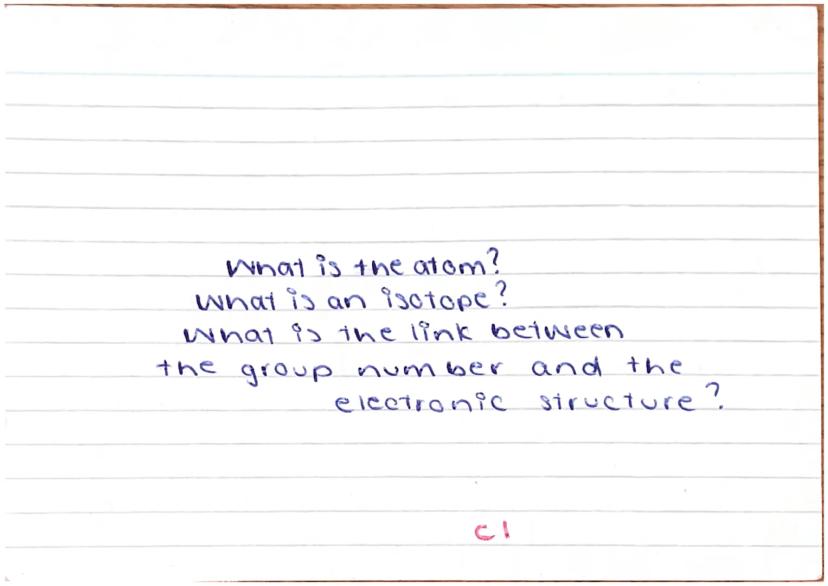 What is the atom?
What is an isotope?
What is the link between
the group number and the
electronic structure?
C1